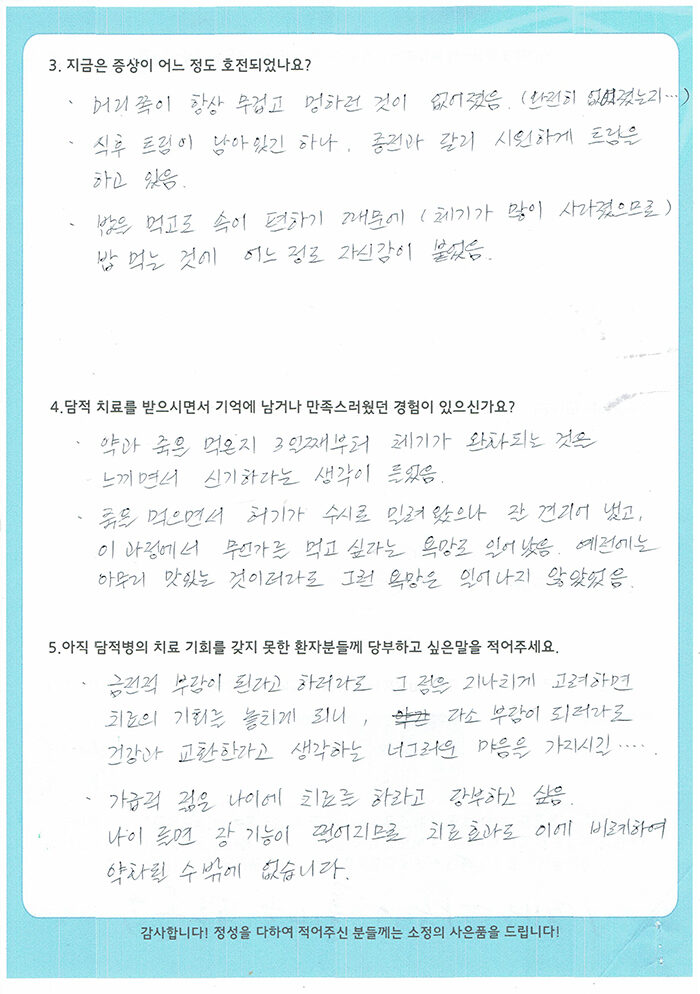 3. 지금은 증상이 어느 정도 호전되었나요?
· 머리쪽이 항상 무겁고 멍하던 것이 없어졌음. (완전히 없어졌는지…)
· 식후 트림이 남아있긴 하나, 종전과 달리 시원하게 트림은
하고 있음.
· 밥을 먹고도 속이 편하기 때문에 (체기가 많이 사라졌으므로)
밥 먹는 것에 어느 정도 자신감이 붙었음.
4.담적 치료를 받으시면서 기억에 남거나 만족스러웠던 경험이 있으신가요?
· 약과 죽을 먹은지 3일째부터 체기가 완화되는 것을
느끼면서 신기하다는 생각이 들었음.
· 죽을 먹으면서 허기가 수시로 밀려 왔으나 잘 견디어 냈고,
이 과정에서 무언가를 먹고 싶다는 욕망도 일어났음. 예전에는
아무리 맛있는 것이더라도 그런 욕망은 일어나지 않았었음.
5.아직 담적병의 치료 기회를 갖지 못한 환자분들께 당부하고 싶은말을 적어주세요.
· 금전적 부담이 된다고 하더라도 그 점을 지나치게 고려하면
치료의 기회를 놓치게 되니, 다소 부담이 되더라도
건강과 교환한다고 생각하는 너그러운 마음을 가지시길…..
· 가급적 젊은 나이에 치료를 하라고 당부하고 싶음.
나이 들면 장 기능이 떨어지므로 치료효과도 이에 비례하여
약차될 수밖에 없습니다.
감사합니다! 정성을 다하여 적어주신 분들께는 소정의 사은품을 드립니다!